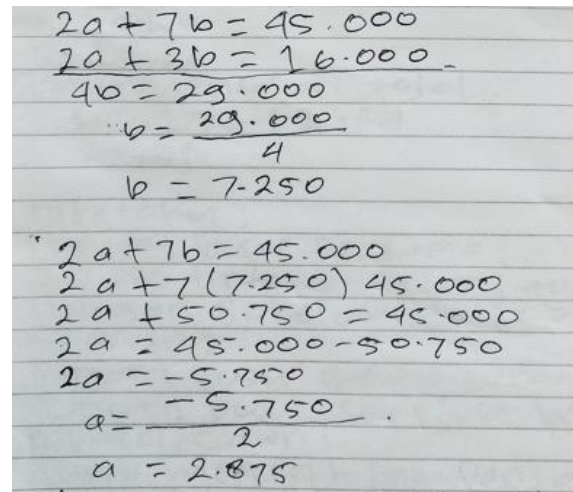 2a + 7b = 45.000
2a + 3b = 16.000 -
4b = 29.000
b = 29.000
4
b = 7.250
2a + 7b = 45.000
2a + 7 (7.250) 45.000
2a + 50.750 = 45.000
2a = 45.000 - 50.750
2a = -5.750
a = -5.750
2
a = 2.875